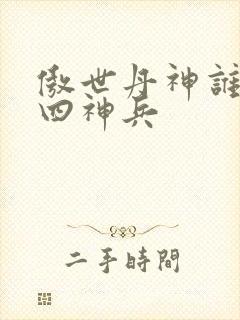 傲世丹神誰
四神兵
二手時間